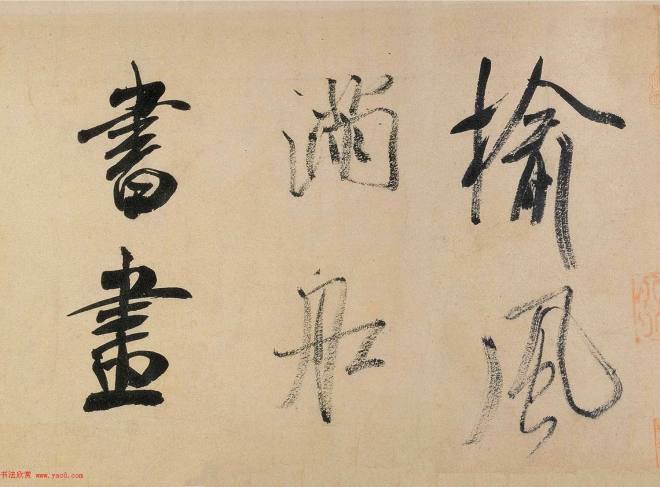 榆風
滿船
書畫
书法欣赏 www.yac8.com